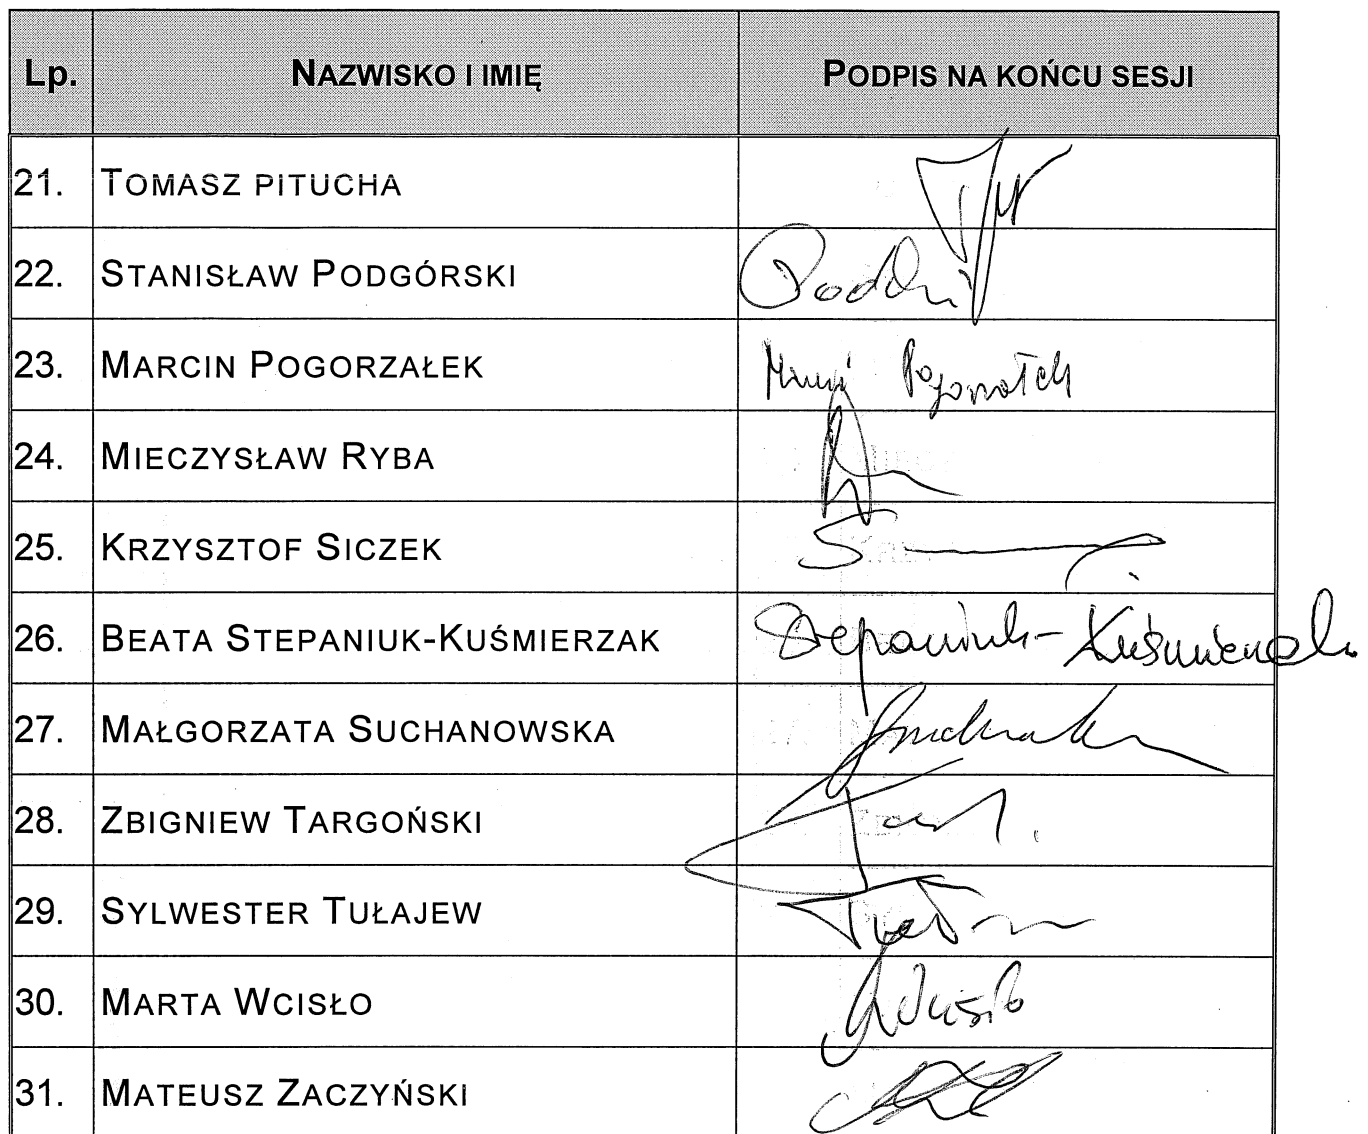 Lp. NAZWISKO I IMIĘ PODPIS NA KOŃCU SESJI
21. TOMASZ PITUCHA
22. STANISŁAW PODGÓRSKI
23. MARCIN POGORZAŁEK
24. MIECZYSŁAW RYBA
25. KRZYSZTOF SICZEK
26. BEATA STEPANIUK-KUŚMIERZAK Stepaniuk-Kuśmierzak
27. MAŁGORZATA SUCHANOWSKA
28. ZBIGNIEW TARGOŃSKI
29. SYLWESTER TUŁAJEW
30. MARTA WCISŁO Wcisło
31. MATEUSZ ZACZYŃSKI